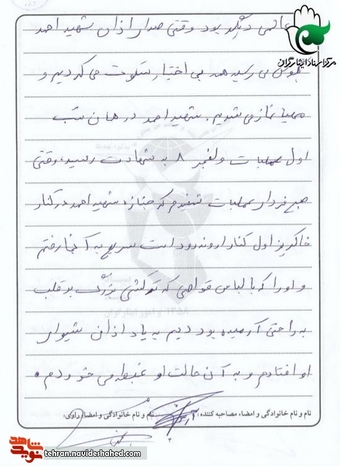 مرکز اسناد ایثارگران
عالمی دیگر بود وقتی صدای اذان شهید احمد
بگوش می رسید همه بی اختیار سکوت می کردیم و
مهیا نماز می شدیم. شهید احمد در همان شب
اول عملیات والفجر ۸ به شهادت رسید، وقتی
صبح فردای عملیات شنیدم که جنازه شهید احمد در کنار
خاکریز اول کنار اروند رود است سریع به آنجا رفتم
و او را که با لباس غواصی که ترکشی بزرگ بر قلب
به راحتی آرمیده بود دیدم به یاد اذان شیوای
او افتادم و به آن حالت او غبطه می خوردم.
نام و نام خانوادگی و امضاء مصاحبه کننده:
نام و نام خانوادگی و امضاء راوی:
نوید شاهد
tehran.navideshahed.com